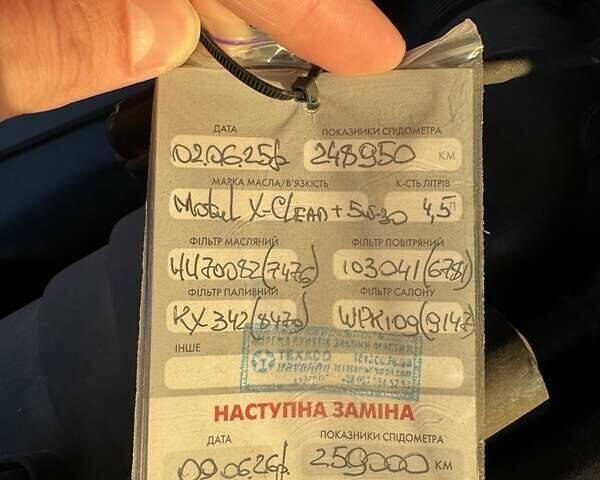 ДАТА ПОКАЗНИКИ СПІДОМЕТРА
02.06.25р 248950 КМ
МАРКА МАСЛА/В'ЯЗКІСТЬ К-СТЬ ЛІТРІВ
Mobil X-CLEAN+5w-30 4,5л
ФІЛЬТР МАСЛЯНИЙ ФІЛЬТР ПОВІТРЯНИЙ
HU7008Z(7476) 103041(6781)
ФІЛЬТР ПАЛИВНИЙ ФІЛЬТР САЛОНУ
KX342(8470) WPK109(9147)
ІНШЕ
TEXACO
НАСТУПНА ЗАМІНА
ДАТА ПОКАЗНИКИ СПІДОМЕТРА
259000 КМ